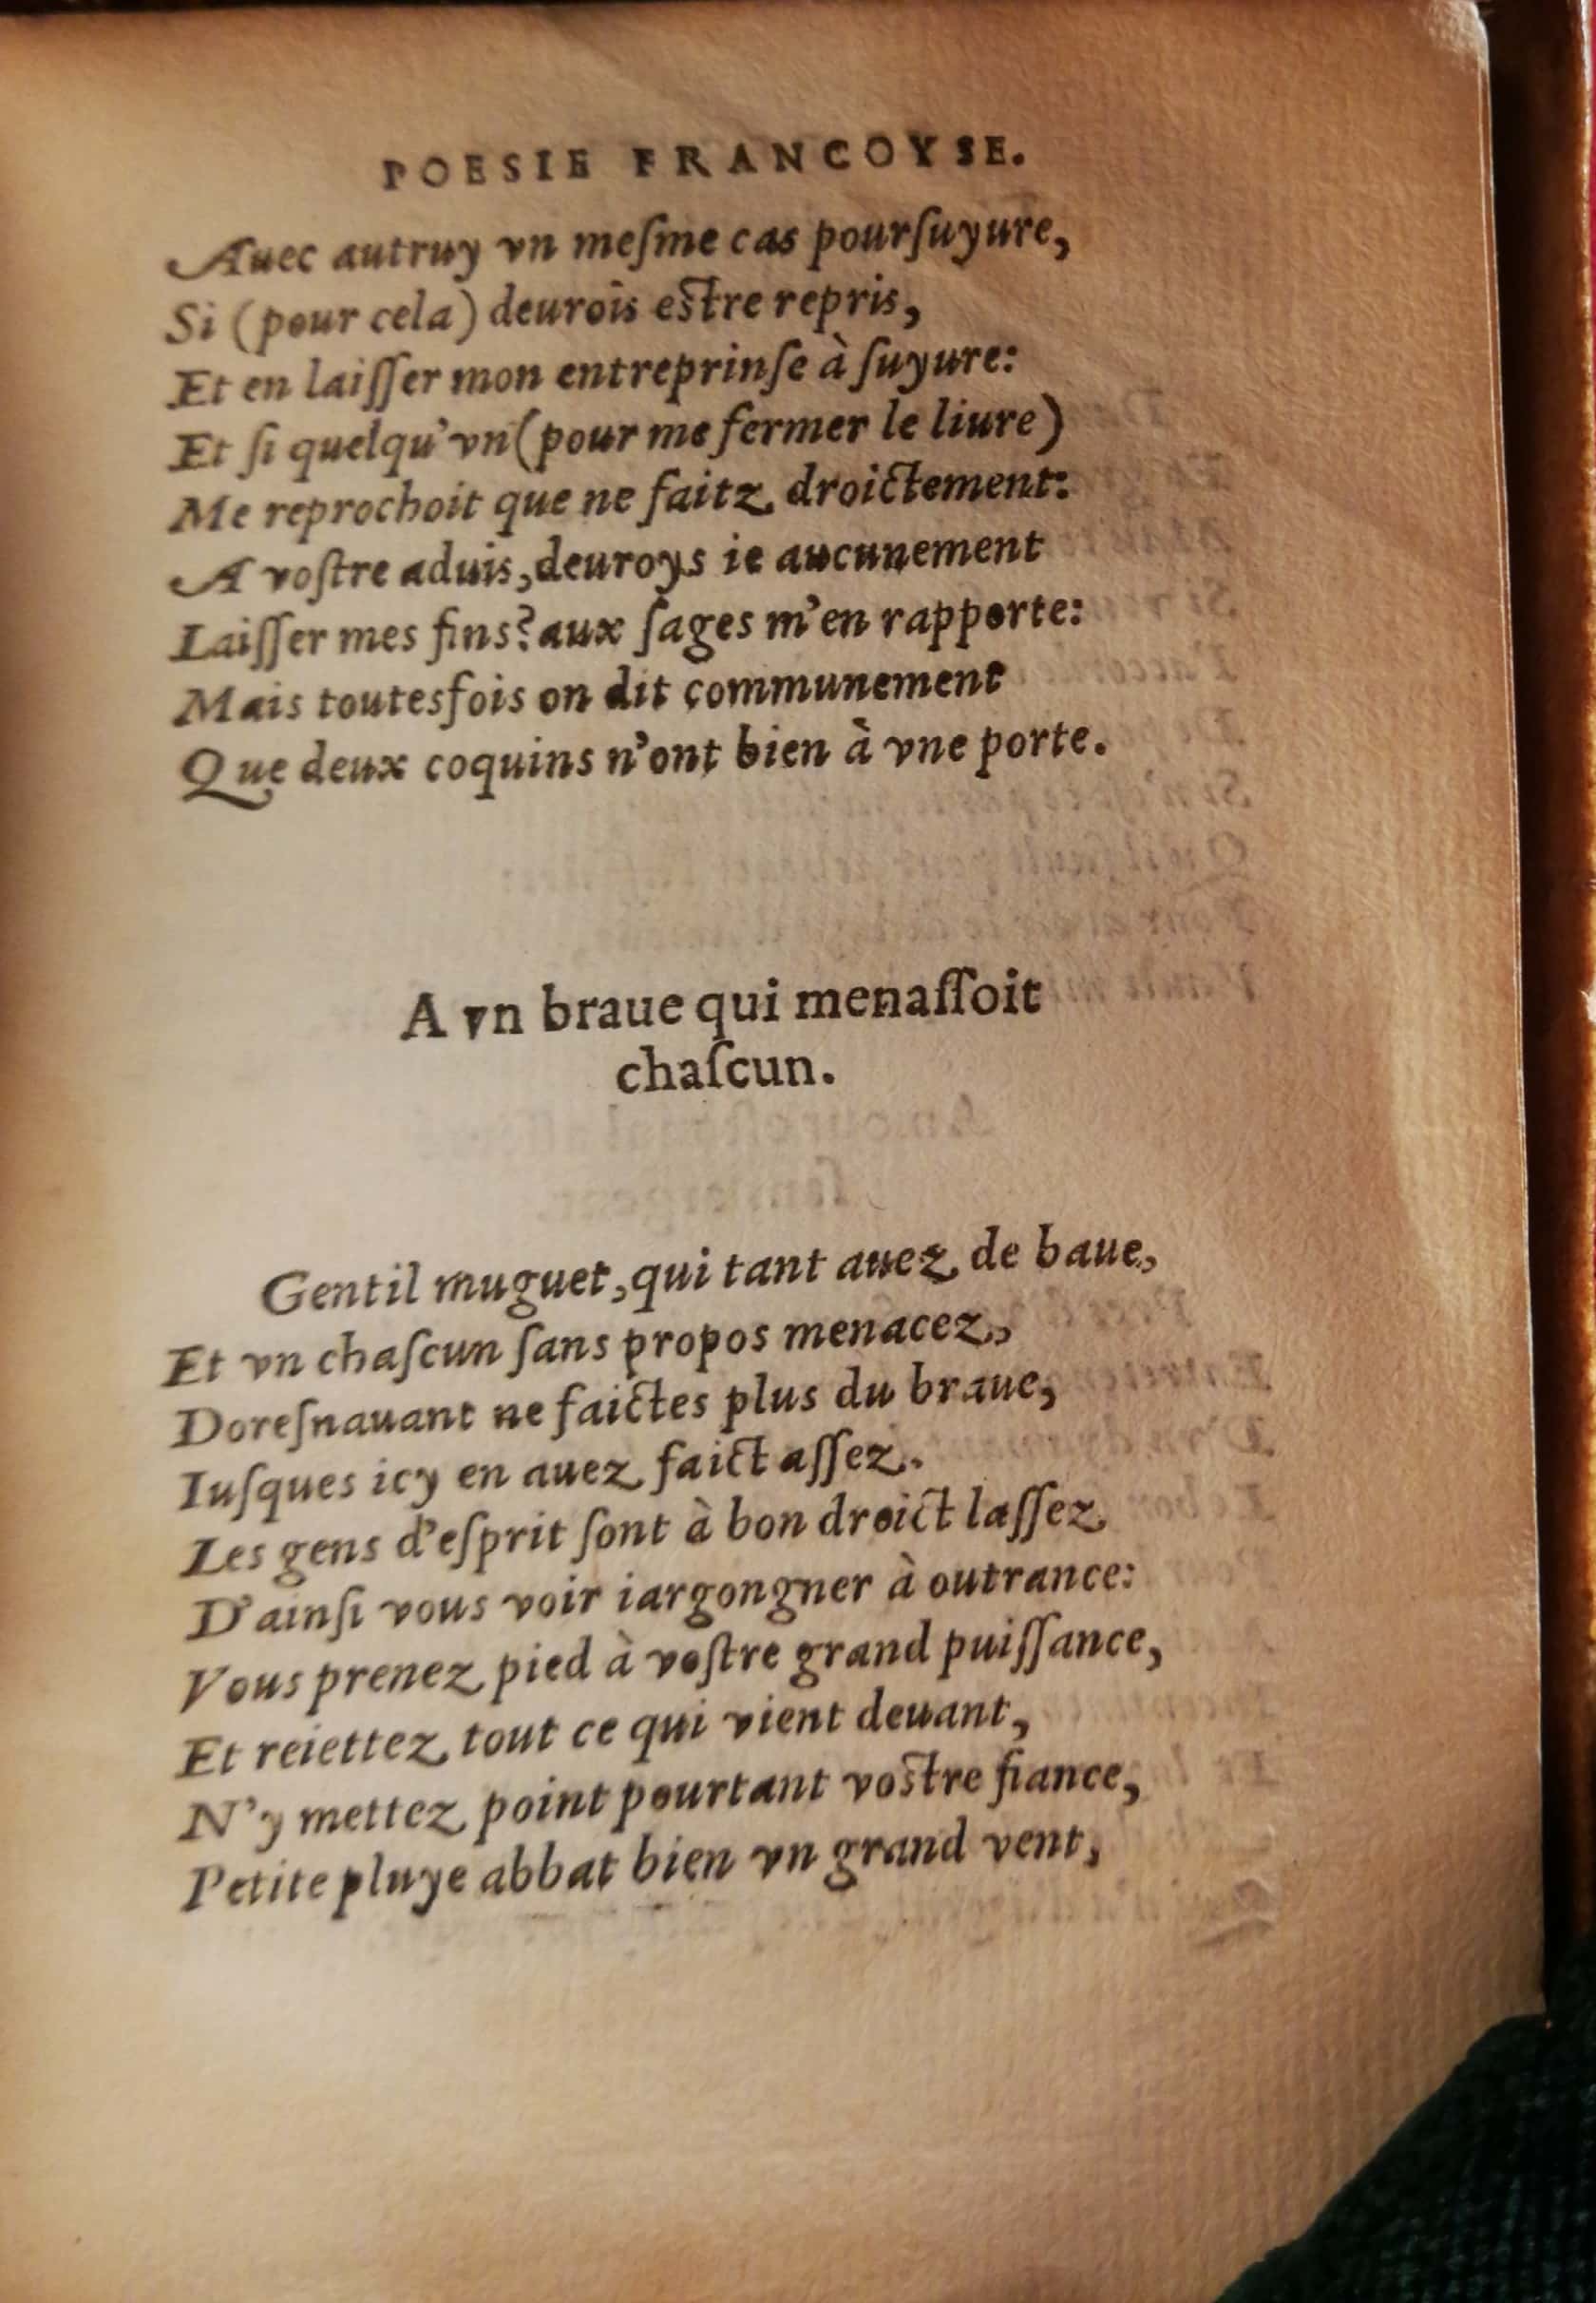 POESIE FRANCOYSE.
Auec autruy vn meſme cas pourſuyure,
Si (pour cela) deurois eſtre repris,
Et en laiſſer mon entreprinſe à ſuyure:
Et ſi quelqu'vn (pour me fermer le liure)
Me reprochoit que ne faitz droictement:
A voſtre aduis, deuroys ie aucunement
Laiſſer mes fins? aux ſages m'en rapporte:
Mais toutesfois on dit communement
Que deux coquins n'ont bien à vne porte.
A vn braue qui menaſſoit
chaſcun.
Gentil muguet, qui tant auez de baue,
Et vn chaſcun ſans propos menacez,
Doreſnauant ne faictes plus du braue,
Iuſques icy en auez faict aſſez.
Les gens d'eſprit ſont à bon droict laſſez
D'ainſi vous voir iargongner à outrance:
Vous prenez pied à voſtre grand puiſſance,
Et reiettez tout ce qui vient deuant,
N'y mettez point pourtant voſtre fiance,
Petite pluye abbat bien vn grand vent,